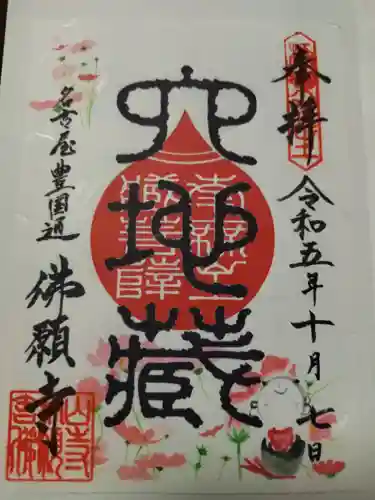 奉拝
令和五年十月七日
六地蔵
名古屋豊国通
佛願寺